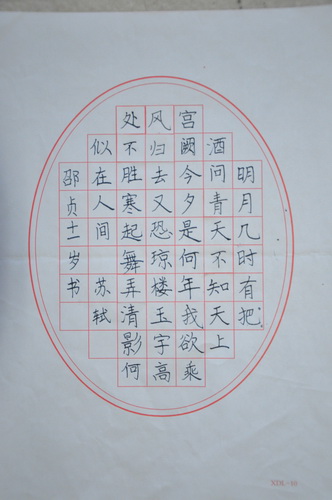 明月几时有把
酒问青天不知天上
宫阙今夕是何年我欲乘
风归去又恐琼楼玉宇高
处不胜寒起舞弄清影何
似在人间 苏轼
邵贞十一岁书